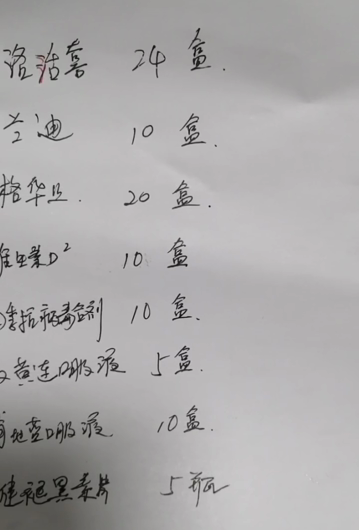 洛活喜 24 盒.
兰迪 10 盒.
格华止. 20 盒.
维生素D² 10 盒
抗病毒合剂 10 盒.
黄连口服液 5 盒.
口服液. 10 盒.
褪黑素片 5 瓶